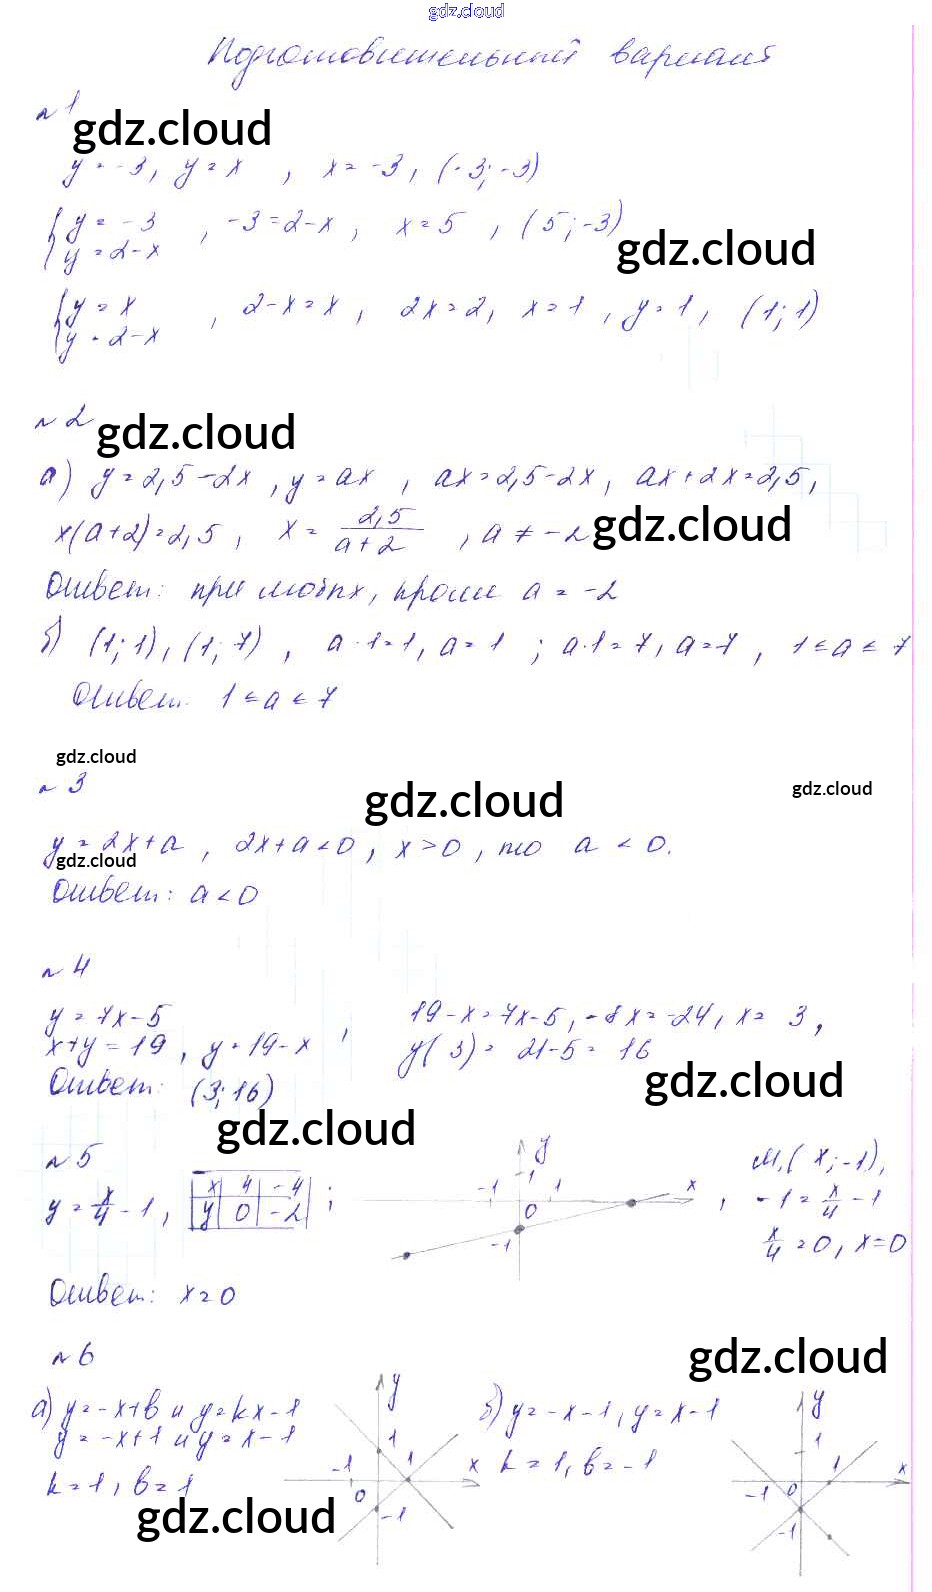 gdz.cloud
Подготовительный вариант
№1
gdz.cloud
y = -3, y = x , x = -3, (-3; -3)
{ y = -3
y = 2-x , -3 = 2-x, x = 5 , (5; -3)
gdz.cloud
{ y = x
y = 2-x , 2-x = x, 2x = 2, x = 1, y = 1, (1; 1)
№2
gdz.cloud
а) y = 2,5 - 2x, y = ax, ax = 2,5 - 2x, ax + 2x = 2,5,
x(a+2) = 2,5, x = 2,5/(a+2), a ≠ -2
gdz.cloud
Ответ: при любых, кроме a = -2
б) (1; 1), (1; 7), a·1 = 1, a = 1; a·1 = 7, a = 7, 1 ≤ a ≤ 7
Ответ. 1 ≤ a ≤ 7
gdz.cloud
№3
gdz.cloud
gdz.cloud
y = 2x + a, 2x + a < 0, x > 0, то a < 0.
gdz.cloud
Ответ: a < 0
№4
y = 7x - 5
x + y = 19, y = 19 - x, 19 - x = 7x - 5, -8x = -24, x = 3,
y(3) = 21 - 5 = 16
Ответ: (3; 16)
gdz.cloud
gdz.cloud
№5
y = x/4 - 1, x 4 -4
y 0 -2 ;
y
1
-1 1 x
0
-1
, M₁(x; -1),
-1 = x/4 - 1
x/4 = 0, x = 0
Ответ: x = 0
№6
gdz.cloud
а) y = -x + b и y = kx - 1
y = -x + 1 и y = x - 1
k = 1, b = 1
y
1
-1 1 x
0
-1
б) y = -x - 1, y = x - 1
k = 1, b = -1
y
1
-1 0 1 x
-1
gdz.cloud